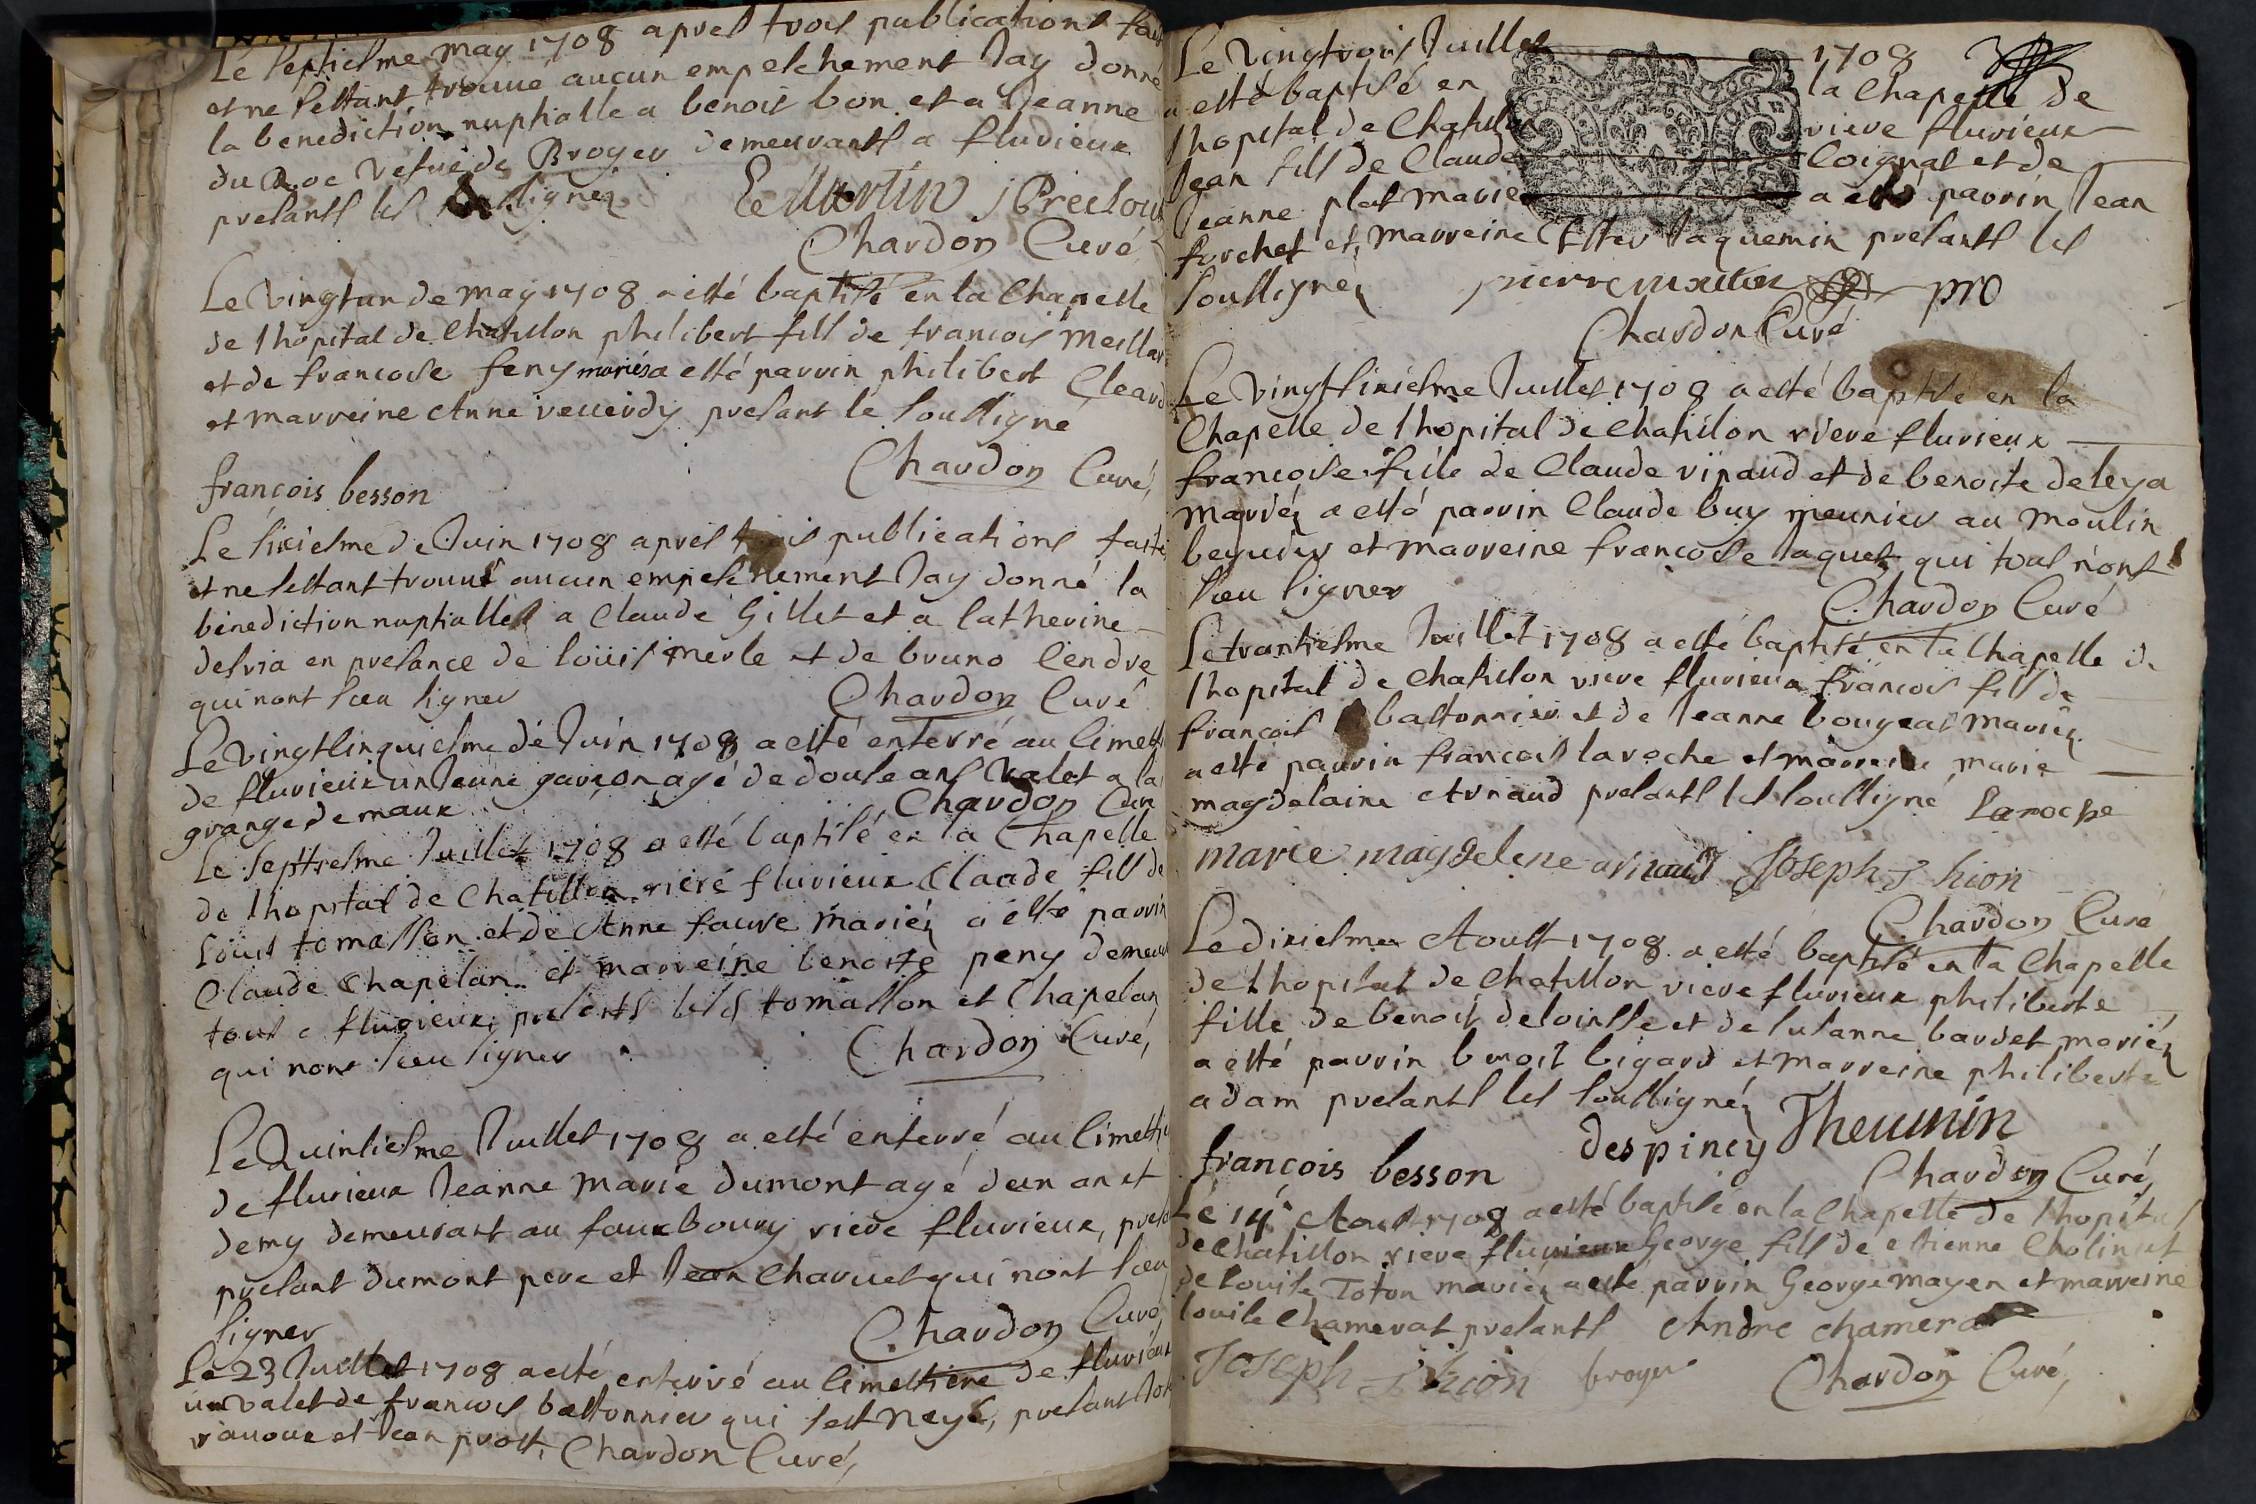 Le septiesme may 1708 apres trois publications fait
et ne sestant trouue aucun empeschement Jay donné
la benediction nuptialle a benoit bon et a Jeanne
du Roc vefue de Broyer demeurants a fluvieux
presants les soussignez
E Martin J Precloux
Chardon Curé
Le vingtun de may 1708 a esté baptisé en la Chapelle
de lhopital de Chatillon philibert fils de francois Meillar
et de francoise feny mariés a esté parrin philibert Cleard
et marreine Anne reuerdy presant le soussigné
Chardon Curé,
françois besson
Le sixiesme de Juin 1708 apres trois publications faite
et ne sestant trouué aucun empeschement Jay donné la
benediction nuptialle a Claude Gillet et a Catherine
desvia en presance de loüis merle et de bruno Cendre
qui nont sceu signer
Chardon Curé
Le vingtcinquiesme de Juin 1708 a esté enterré au Cimetti
de fluvieux un Jeune garçon agé de douse ans valet a la
grange de maux
Chardon Cur
Le septiesme Juillet 1708 a esté baptisé en la Chapelle
de lhopital de Chatillon riere fluvieux Claude fils de
Louis tomasson et de Anne faure mariéz a esté parrin
Claude Chapelan et marreine benoite peny demeur
tous a fluvieux presents lesd tomasson et Chapelan
qui nont sceu signer
Chardon Curé,
Le Quinziesme Juillet 1708 a esté enterré au Cimetti
de fluvieux Jeanne Marie dumont agé dun an et
demy demeurant au fauxbourg riere fluvieux,
presant dumont pere et Jean Charvet qui nont sceu
signer
Chardon Curé
Le 23 Juillet 1708 a esté enterré au Cimettiere de fluvieux
un valet de francois bastonnier qui sest neyé, presant
et Jean prost, Chardon Curé,
Le vingtrois Juillet 1708
a esté baptisé en la Chapelle de
lhopital de Chatillon riere fluvieux
Jean fils de Claude Coignat et de
Jeanne plat mariés a esté parrin Jean
forchet et marreine Ester Jaquemin presants les
soussignéz
pro
Chardon Curé
Le vingtsixiesme Juillet 1708 a esté baptisé en la
Chapelle de lhopital de Chatillon riere fluvieux
francoise fille de Claude vipaud et de benoite deleya
mariéz a esté parrin Claude buy meunier au moulin
et marreine francoise Jaquet qui tous n'ont
sceu signer
Chardon Curé
Le trantiesme Juillet 1708 a esté baptisé en la Chapelle de
lhopital de Chatillon riere fluvieux francois fils de
francois bastonnier et de Jeanne bougeat mariéz
a esté parrin francois laroche et marreine marie
magdelaine Arnaud presants les soussigné Laroche
marie magdelene arnaud Joseph Thion
Chardon Curé
Le dixiesme Aoust 1708 a esté baptisé en la Chapelle
de lhopital de Chatillon riere fluvieux philiberte
fille de benoit deloisse et de susanne bardet mariéz
a esté parrin benoit bigard et marreine philiberte
adam presants les soussignéz
despiney Theunin
françois besson
Chardon Curé,
Le 14e Aoust 1708 a esté baptisé en la Chapelle de lhopital
de Chatillon riere fluvieux George fils de estienne Cholin et
de louise Toton mariéz a esté parrin George mayer et marreine
louise Chamerat presants Andre chamerat
Joseph Thion broyer
Chardon Curé,